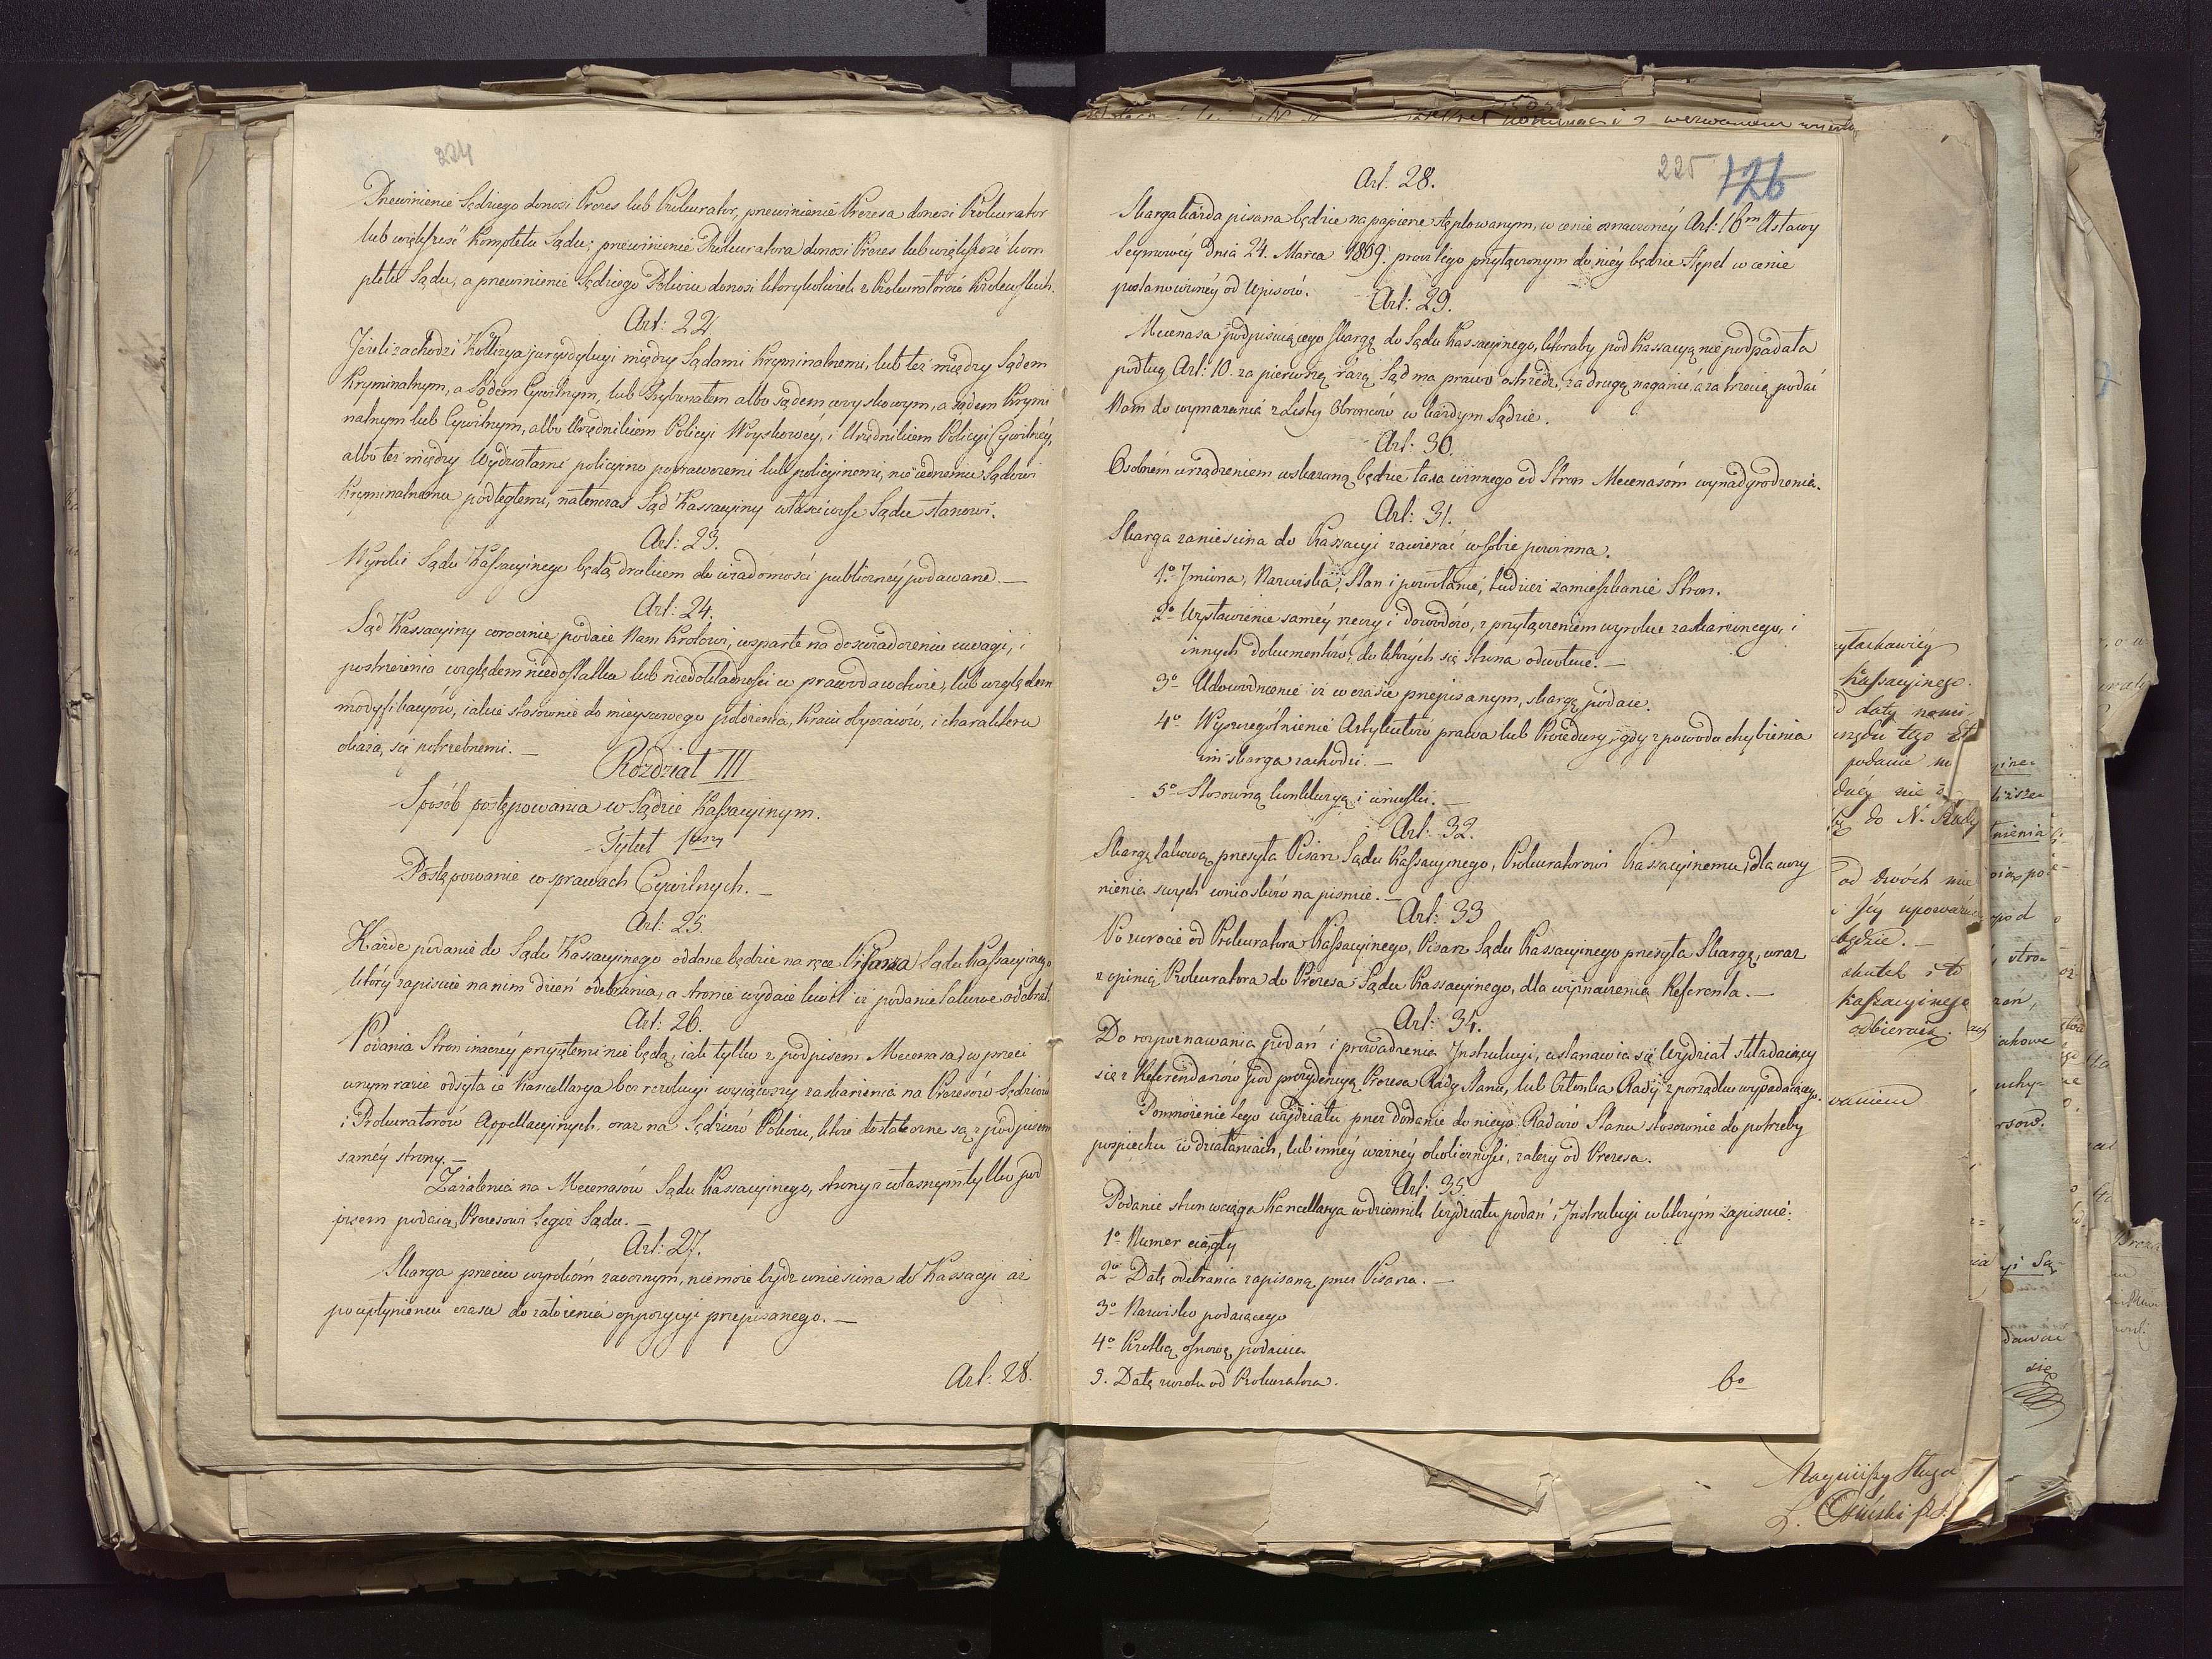 224
Przewinienie Sędziego donosi Prezes lub Prokurator, przewinienie Prezesa donosi Prokurator
lub większość Kompletu Sądu; przewinienie Prokuratora donosi Prezes lub większość kom
pletu Sądu, a przewinienie Sędziego Pokoiu donosi którykolwiek z Prokuratorów Królewskich.
Art: 22.
Jeżeli zachodzi Kollizya jurysdykcyi między Sądami Kryminalnemi, lub też między Sądem
Kryminalnym, a Sądem Cywilnym, lub Trybunałem albo sądem woyskowym, a sądem Krymi
nalnym lub Cywilnym, albo Urzędnikiem Policyi Woyskowey, i Urzędnikiem Policyi Cywilnéy,
albo też między Wydziałami policyino poprawczemi lub policyinemi, nie iednemu Sądowi
Kryminalnemu podległemi, natenczas Sąd Kassacyiny właściwość Sądu stanowi.
Art: 23.
Wyroki Sądu Kassacyinego będą drukiem do wiadomości publicznéy podawane. —
Art: 24.
Sąd Kassacyiny corocznie podaie Nam Królowi, wsparte na doświadczeniu uwagi, i
postrzeżenia względem niedostatku lub niedokładności w prawodawstwie, lub względem
modyfikacyów, iakie stosownie do mieyscowego położenia, Kraiu obyczaiów, i charakteru
okażą się potrzebnemi. —
Rozdział III
Sposób postępowania w Sądzie Kassacyinym.
Tytuł 1szy
Postępowanie w sprawach Cywilnych. —
Art: 25.
Każde podanie do Sądu Kassacyinego oddane będzie na ręce Pisarza Sądu Kassacyinego
który zapisuie na nim dzień odebrania, a stronie wydaie kwit iż podanie takowe odebrał.
Art: 26.
Podania Stron inaczéy przyiętemi nie będą, iak tylko z podpisem Mecenasa, w przeci
wnym razie odsyła ie Kancellarya bez rezolucyi wyiąwszy zaskarżenia na Prezesów Sędziów
i Prokuratorów Appellacyinych, oraz na Sędziów Pokoiu, które dostateczne są z podpisem
saméy strony. —
Zażalenia na Mecenasów Sądu Kassacyinego, strony z własnym tylko pod
pisem podaią Prezesowi tegoż Sądu. —
Art: 27.
Skarga przeciw wyrokom zaocznym, nie może bydź wniesiona do Kassacyi aż
po upłynieniu czasu do założenia oppozycyi przepisanego. —
Art: 28.
225 126
Art. 28.
Skarga każda pisana będzie na papierze stęplowanym, w cenie oznaczonéy Art: 16m Ustawy
Seymowéy dnia 24. Marca 1809. prócz tego przyłączonym do niéy będzie Stępel w cenie
postanowionéy od Wpisów.
Art: 29.
Mecenasa podpisuiącego skargę do Sądu Kassacyinego, któraby pod Kassacyą nie podpadała
podług Art: 10. za pierwszą razą Sąd ma prawo ostrzedz, za drugą naganić, a za trzecią podać
Nam do wymazania z Listy Obrońców w każdym Sądzie.
Art: 30.
Osobném urządzeniem wskazaną będzie taxa winnego od Stron Mecenasóm wynadgrodzenia.
Art: 31.
Skarga zaniesiona do Kassacyi zawierać w sobie powinna.
1o Jmiona, Nazwiska, Stan i powołanie, tudzież zamieszkanie Stron.
2o Wystawienie saméy rzeczy i dowodów, z przyłączeniem wyroku zaskarżonego, i
innych dokumentów, do których się strona odwołuie. —
3o Udowodnienie iż w czasie przepisanym, skargę podaie.
4o Wyszczególnienie Artykułów prawa lub Procedury, gdy z powodu chybienia
im skarga zachodzi. —
5o Stosowną konkluzyą i wnioski. —
Art: 32.
Skargę takową przesyła Pisarz Sądu Kassacyinego, Prokuratorowi Kassacyinemu, dla uczy
nienia swych wniosków na piśmie. —
Art: 33
Po zwrocie od Prokuratora Kassacyinego, Pisarz Sądu Kassacyinego przesyła Skargę, wraz
z opinią Prokuratora do Prezesa Sądu Kassacyinego, dla wyznaczenia Referenta. —
Art: 34.
Do rozpoznawania podań i prowadzenia Jnstrukcyi, ustanawia się Wydział składaiący
się z Referendarzów pod prezydencyą Prezesa Rady Stanu, lub Członka Rady z porządku wypadaiącego.
Pomnożenie tego wydziału przez dodanie do niego Radców Stanu stosownie do potrzeby
pospiechu w działaniach, lub innéy ważnéy okoliczności, zależy od Prezesa.
Art: 35.
Podanie stron wciąga Kancellarya w dziennik Wydziału podań i Jnstrukcyi w którym zapisuie:
1o Numer ciągły
2o Datę odebrania zapisaną przez Pisarza. —
3o Nazwisko podaiącego
4o Krótką osnowę podania
5. Datę zwrotu od Prokuratora.
6o
Kassacyinego.
daty nomi-
podanie
do N. Rady
od dwóch
i Jéy upoważ
będzie. —
skutek i to
Kassacyinego
odbieraią.
Nayniższy Sługa
L. Osiński